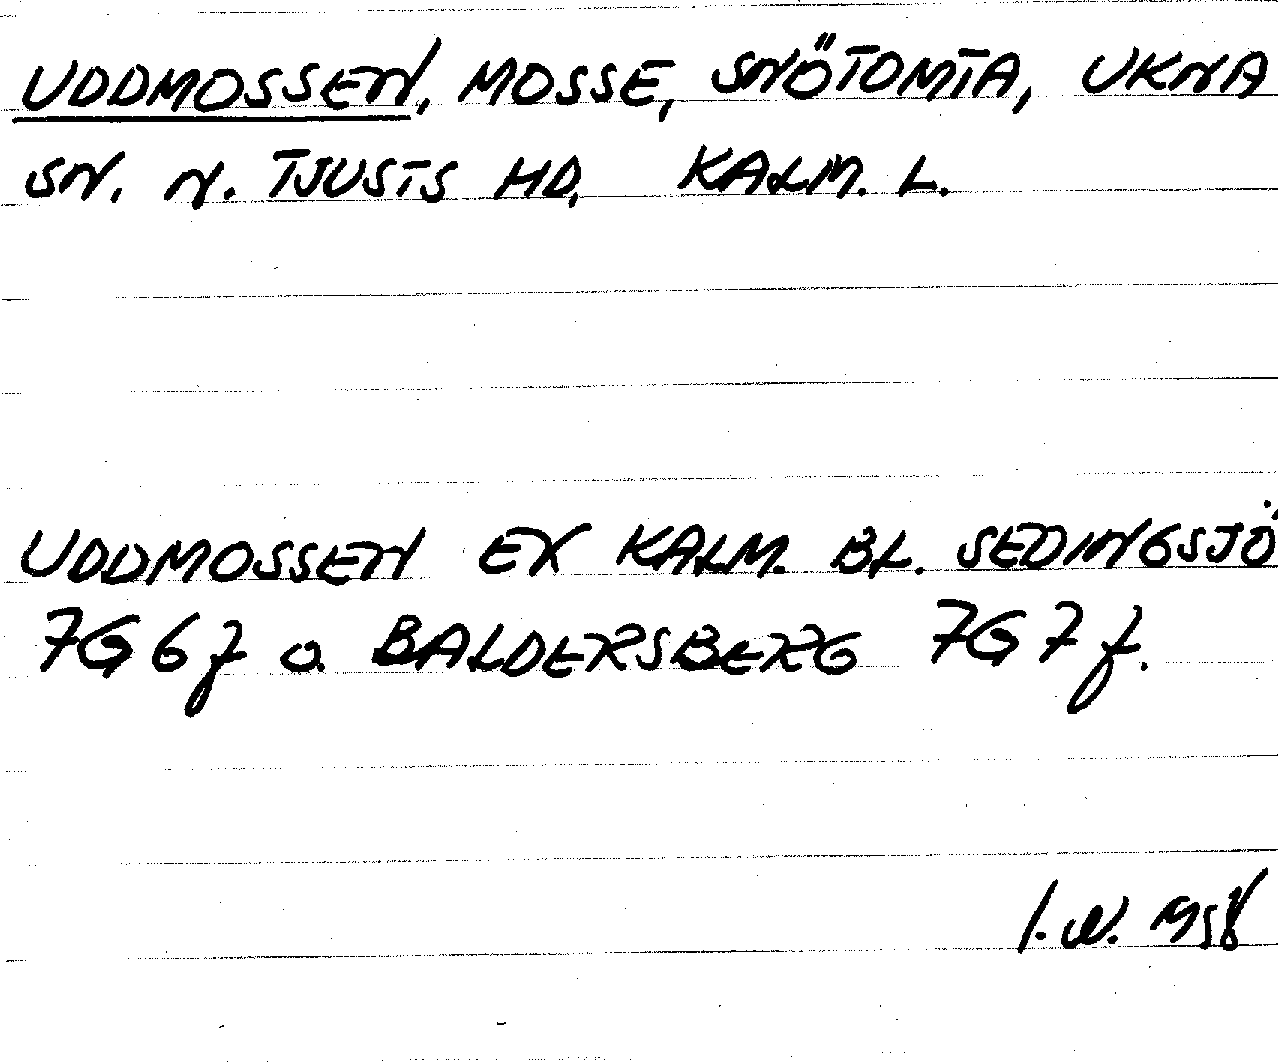 UDDMOSSEN, MOSSE, SNÖTOMTA, UKNA
SN. N. TJUSTS HD, KALM. L.
UDDMOSSEN EK KALM. BL. SEDINGSJÖ
7G 6f o. BALDERSBERG 7G 7f.
1958